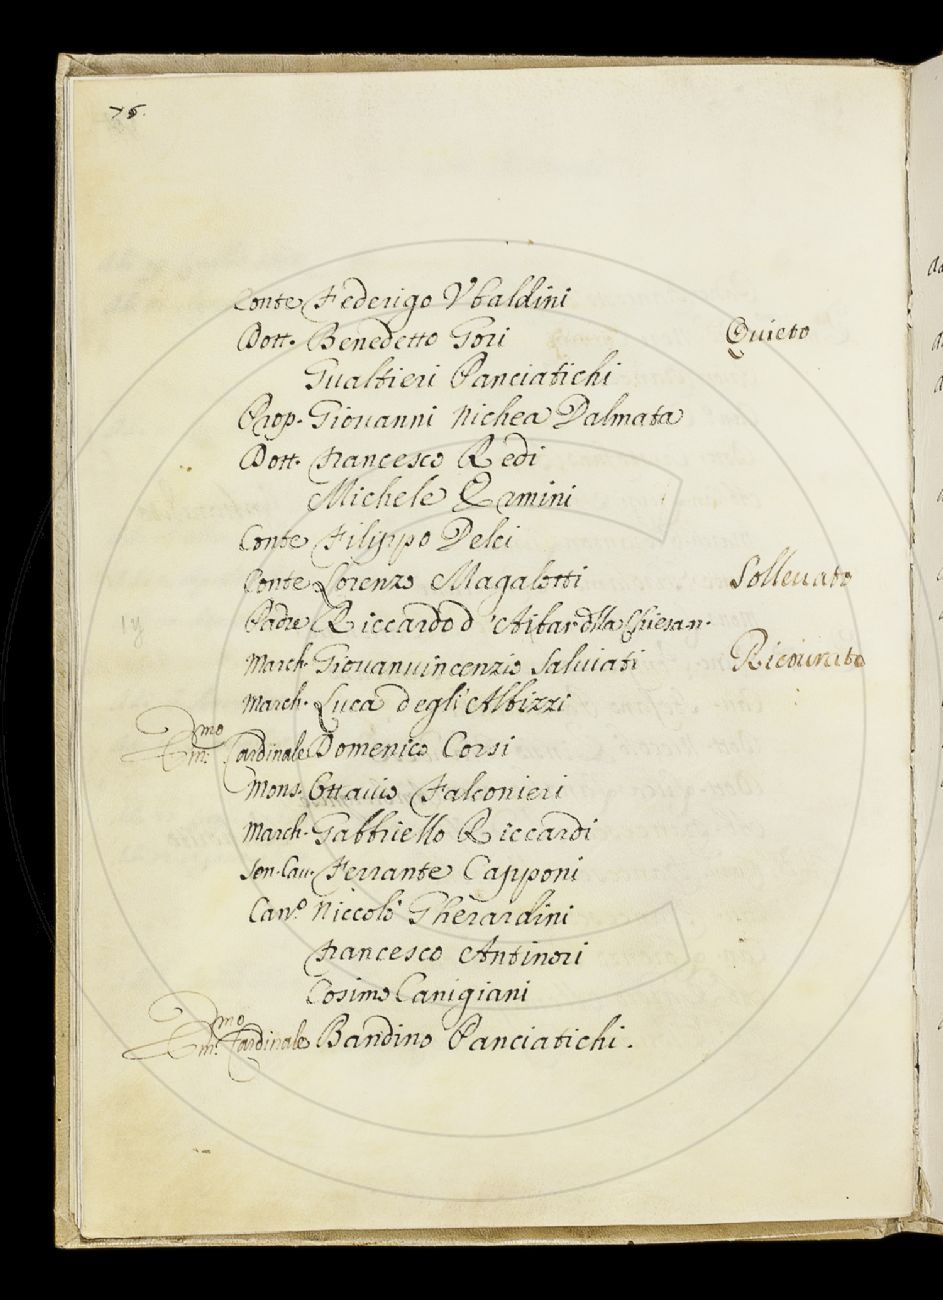 76.
Conte Federigo Vbaldini
Dott. Benedetto Gori Quieto
Gualtieri Panciatichi
Prop. Giouanni Nichea Dalmata
Dott. Francesco Redi
Michele Ermini
Conte Filippo Delci
Conte Lorenzo Magalotti Solleuato
Padre Riccardo d'Aibar dlla Chiesan.
March. Giouanuincenzio Saluiati
March. Luca degl'Albizzi
Em.mo Cardinale Domenico Corsi
Mons. Ottauio Falconieri
March. Gabbriello Riccardi
Sen. Cau. Ferrante Capponi
Can.o Niccolò Gherardini
Francesco Antinori
Cosimo Canigiani
Em.mo Cardinale Bandino Panciatichi.